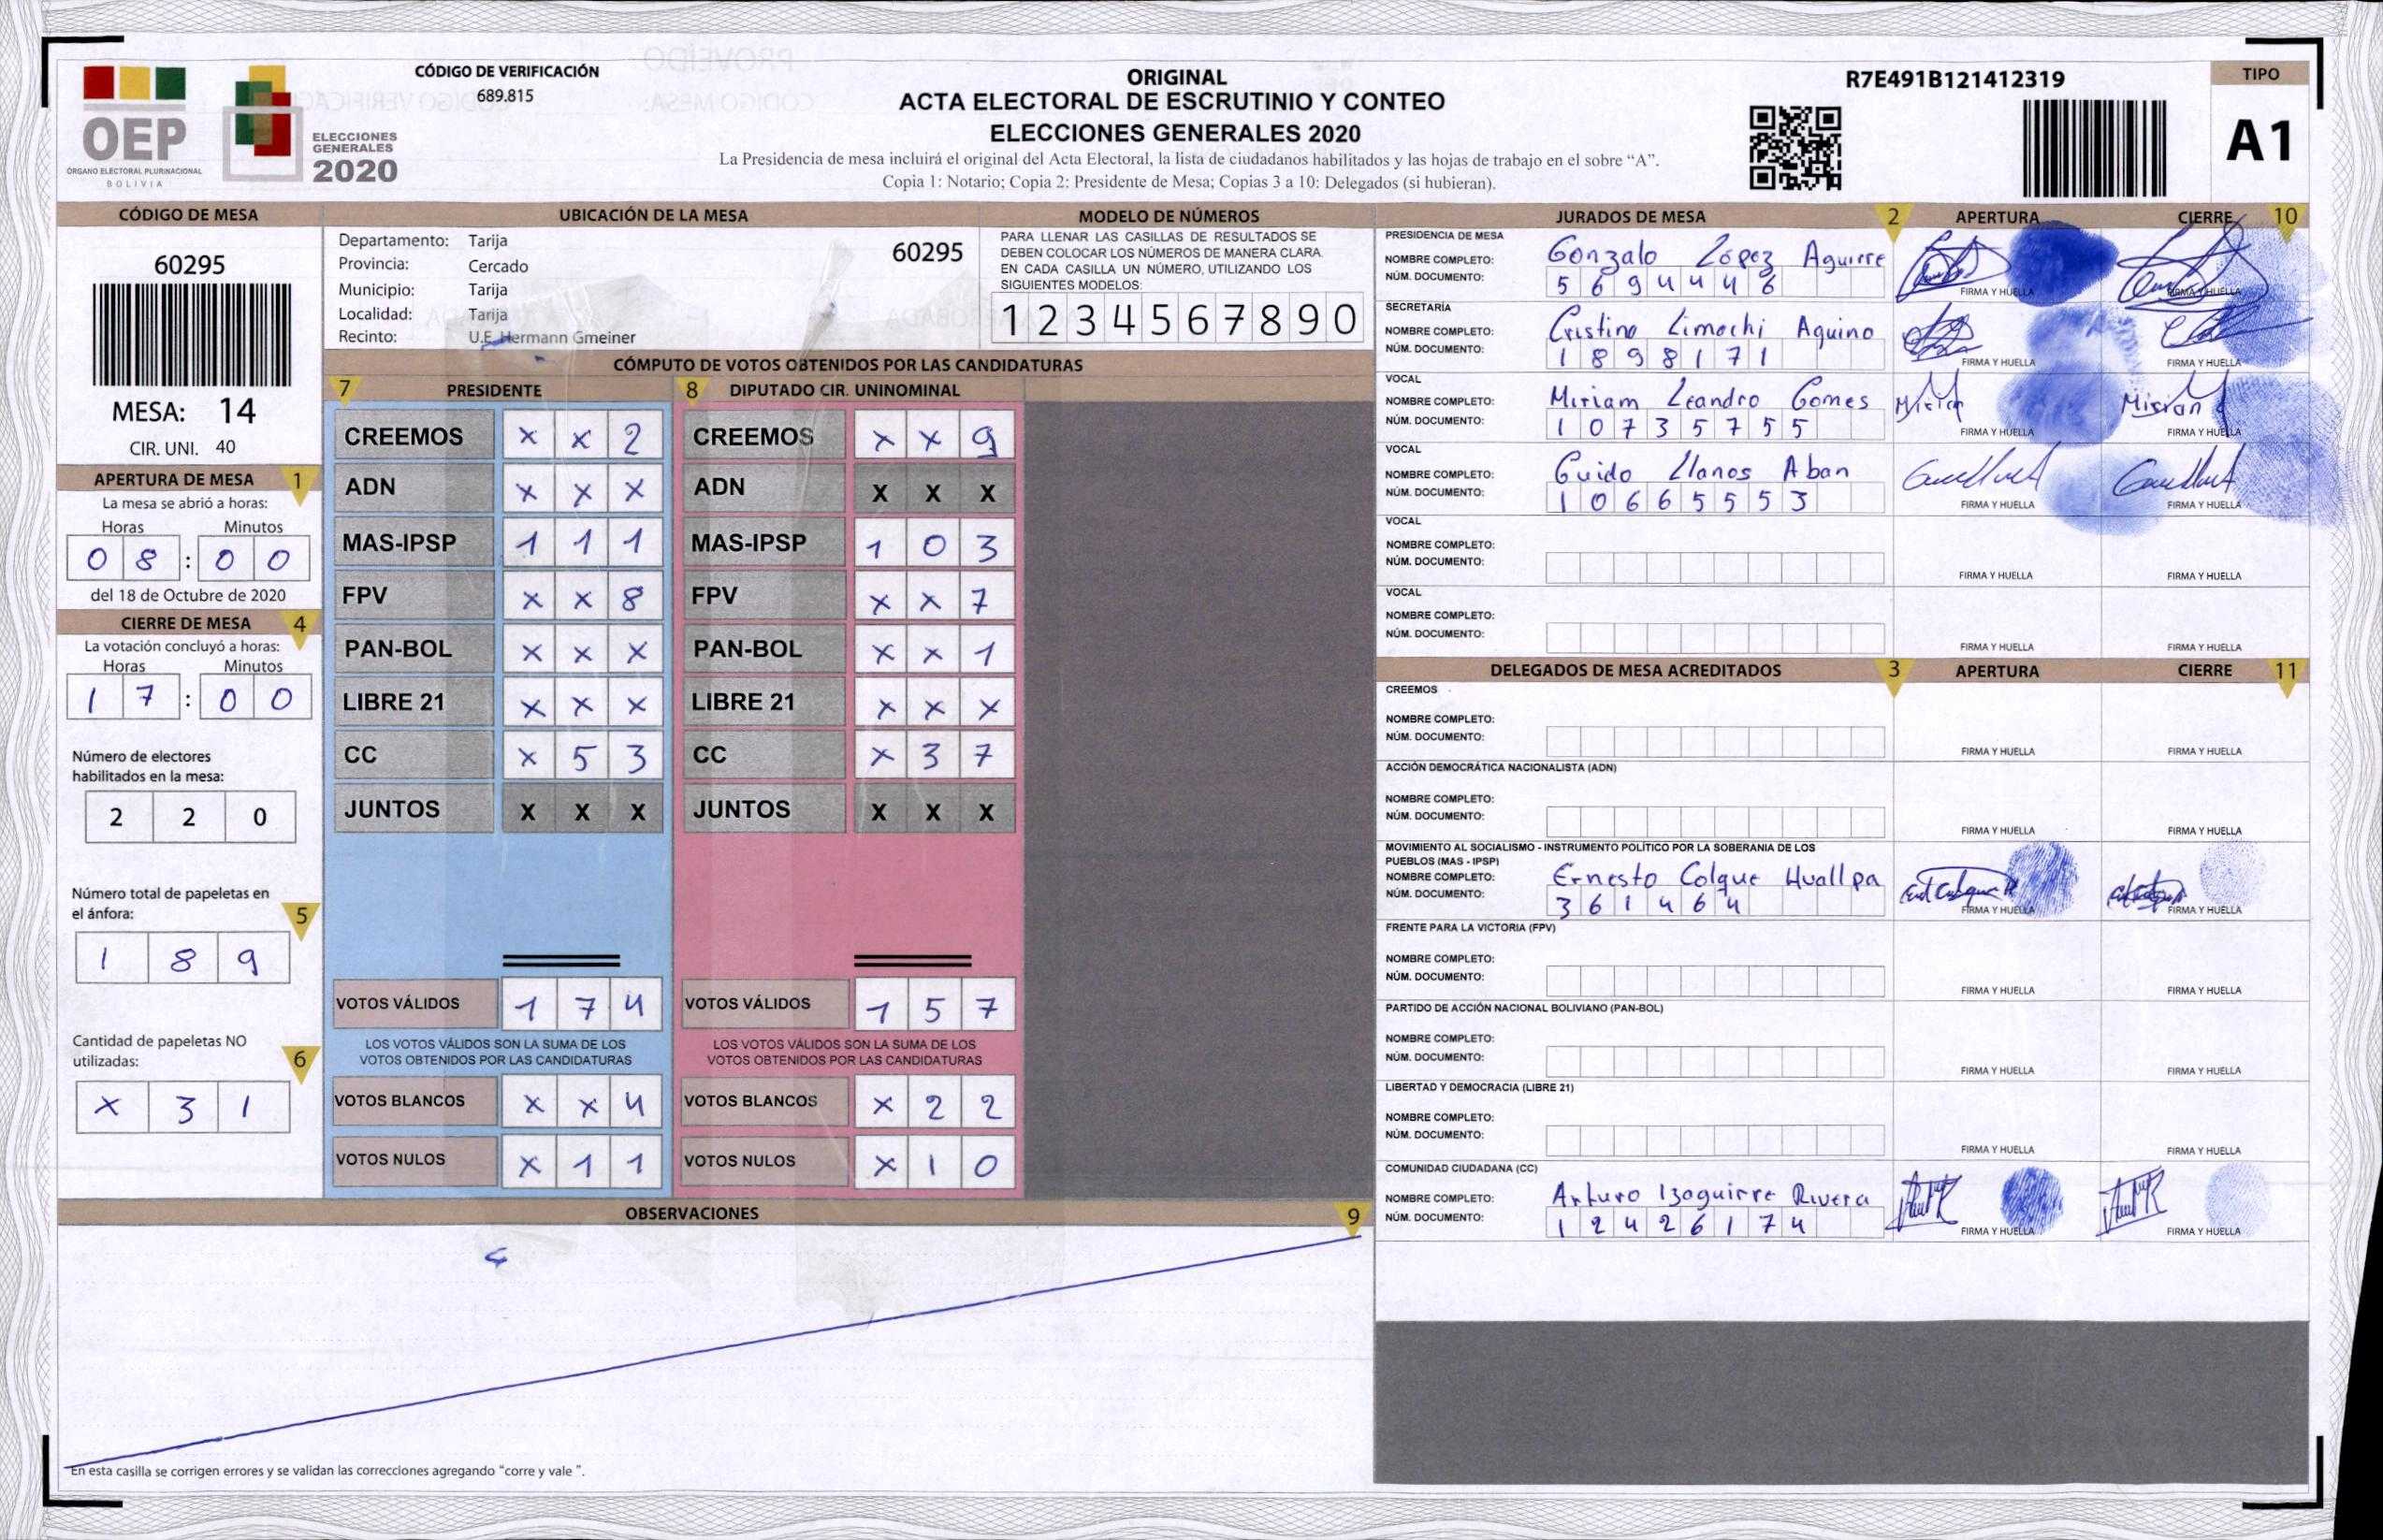 CÓDIGO DE VERIFICACIÓN
689.815
OEP
ÓRGANO ELECTORAL PLURINACIONAL
BOLIVIA
ELECCIONES
GENERALES
2020
ORIGINAL
ACTA ELECTORAL DE ESCRUTINIO Y CONTEO
ELECCIONES GENERALES 2020
La Presidencia de mesa incluirá el original del Acta Electoral, la lista de ciudadanos habilitados y las hojas de trabajo en el sobre “A”.
Copia 1: Notario; Copia 2: Presidente de Mesa; Copias 3 a 10: Delegados (si hubieran).
R7E491B121412319
TIPO
A1
CÓDIGO DE MESA
60295
MESA: 14
CIR. UNI. 40
APERTURA DE MESA 1
La mesa se abrió a horas:
Horas Minutos
0 8 : 0 0
del 18 de Octubre de 2020
CIERRE DE MESA 4
La votación concluyó a horas:
Horas Minutos
1 7 : 0 0
Número de electores
habilitados en la mesa:
2 2 0
Número total de papeletas en
el ánfora: 5
1 8 9
Cantidad de papeletas NO
utilizadas: 6
X 3 1
UBICACIÓN DE LA MESA
Departamento: Tarija
60295
Provincia: Cercado
Municipio: Tarija
Localidad: Tarija
Recinto: U.E. Hermann Gmeiner
MODELO DE NÚMEROS
PARA LLENAR LAS CASILLAS DE RESULTADOS SE
DEBEN COLOCAR LOS NÚMEROS DE MANERA CLARA.
EN CADA CASILLA UN NÚMERO, UTILIZANDO LOS
SIGUIENTES MODELOS:
1 2 3 4 5 6 7 8 9 0
CÓMPUTO DE VOTOS OBTENIDOS POR LAS CANDIDATURAS
7 PRESIDENTE 8 DIPUTADO CIR. UNINOMINAL
CREEMOS X X 2 CREEMOS X X 9
ADN X X X ADN X X X
MAS-IPSP 1 1 1 MAS-IPSP 1 0 3
FPV X X 8 FPV X X 7
PAN-BOL X X X PAN-BOL X X 1
LIBRE 21 X X X LIBRE 21 X X X
CC X 5 3 CC X 3 7
JUNTOS X X X JUNTOS X X X
VOTOS VÁLIDOS 1 7 4 VOTOS VÁLIDOS 1 5 7
LOS VOTOS VÁLIDOS SON LA SUMA DE LOS LOS VOTOS VÁLIDOS SON LA SUMA DE LOS
VOTOS OBTENIDOS POR LAS CANDIDATURAS VOTOS OBTENIDOS POR LAS CANDIDATURAS
VOTOS BLANCOS X X 4 VOTOS BLANCOS X 2 2
VOTOS NULOS X 1 1 VOTOS NULOS X 1 0
OBSERVACIONES 9
En esta casilla se corrigen errores y se validan las correcciones agregando “corre y vale ”.
JURADOS DE MESA 2 APERTURA CIERRE 10
PRESIDENCIA DE MESA
NOMBRE COMPLETO: Gonzalo López Aguirre
NÚM. DOCUMENTO: 5 6 9 4 4 4 6
FIRMA Y HUELLA FIRMA Y HUELLA
SECRETARÍA
NOMBRE COMPLETO: Cristina Limachi Aquino
NÚM. DOCUMENTO: 1 8 9 8 1 7 1
FIRMA Y HUELLA FIRMA Y HUELLA
VOCAL
NOMBRE COMPLETO: Miriam Leandro Gomes
NÚM. DOCUMENTO: 1 0 7 3 5 7 5 5
FIRMA Y HUELLA FIRMA Y HUELLA
VOCAL
NOMBRE COMPLETO: Guido Llanos Aban
NÚM. DOCUMENTO: 1 0 6 6 5 5 5 3
FIRMA Y HUELLA FIRMA Y HUELLA
VOCAL
NOMBRE COMPLETO:
NÚM. DOCUMENTO:
FIRMA Y HUELLA FIRMA Y HUELLA
VOCAL
NOMBRE COMPLETO:
NÚM. DOCUMENTO:
FIRMA Y HUELLA FIRMA Y HUELLA
DELEGADOS DE MESA ACREDITADOS 3 APERTURA CIERRE 11
CREEMOS
NOMBRE COMPLETO:
NÚM. DOCUMENTO:
FIRMA Y HUELLA FIRMA Y HUELLA
ACCIÓN DEMOCRÁTICA NACIONALISTA (ADN)
NOMBRE COMPLETO:
NÚM. DOCUMENTO:
FIRMA Y HUELLA FIRMA Y HUELLA
MOVIMIENTO AL SOCIALISMO - INSTRUMENTO POLÍTICO POR LA SOBERANIA DE LOS
PUEBLOS (MAS - IPSP)
NOMBRE COMPLETO: Ernesto Colque Huallpa
NÚM. DOCUMENTO: 3 6 1 4 6 4
FIRMA Y HUELLA FIRMA Y HUELLA
FRENTE PARA LA VICTORIA (FPV)
NOMBRE COMPLETO:
NÚM. DOCUMENTO:
FIRMA Y HUELLA FIRMA Y HUELLA
PARTIDO DE ACCIÓN NACIONAL BOLIVIANO (PAN-BOL)
NOMBRE COMPLETO:
NÚM. DOCUMENTO:
FIRMA Y HUELLA FIRMA Y HUELLA
LIBERTAD Y DEMOCRACIA (LIBRE 21)
NOMBRE COMPLETO:
NÚM. DOCUMENTO:
FIRMA Y HUELLA FIRMA Y HUELLA
COMUNIDAD CIUDADANA (CC)
NOMBRE COMPLETO: Arturo Izaguirre Rivera
NÚM. DOCUMENTO: 1 2 4 2 6 1 7 4
FIRMA Y HUELLA FIRMA Y HUELLA